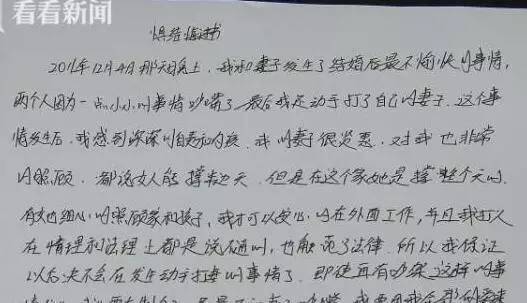 看看新闻
悔过书
2011年12月4日那天晚上，我和妻子发生了结婚后最不愉快的事情，
两个人因为一点小小的事情吵嘴了，最后我还动手打了自己的妻子。这个事
情发生后，我感到深深的自责和内疚，我的妻子很贤惠，对我也非常
的照顾，都说女人能撑半边天，但是在这个家她是撑整个天的，
她细心的照顾家和孩子，我才可以安心的在外面工作，并且我打人
在情理和法理上都是说不通的，也触犯了法律，所以我保证
以后决不会在发生动手打妻的事情了，即使再有吵架这样的事